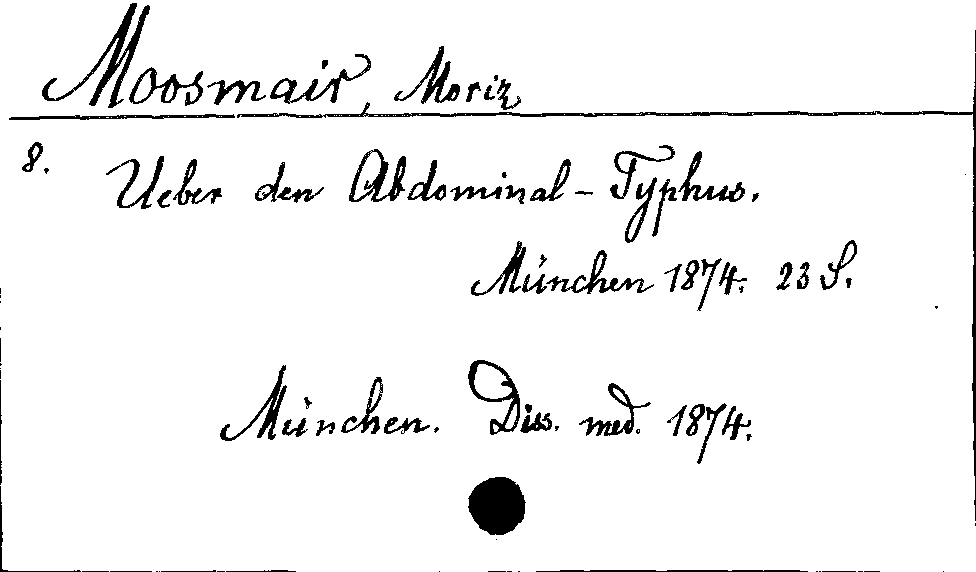 Moosmair, Moriz
8. Ueber den Abdominal-Typhus.
München 1874. 23 S.
München. Diss. med. 1874.